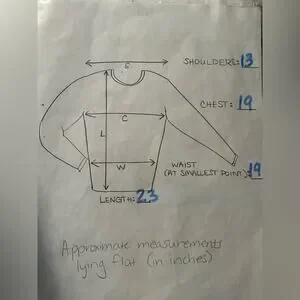 S
SHOULDERS: 13
C
CHEST: 19
L
W
WAIST
(AT SMALLEST POINT): 19
LENGTH: 23
Approximate measurements
lying flat (in inches)